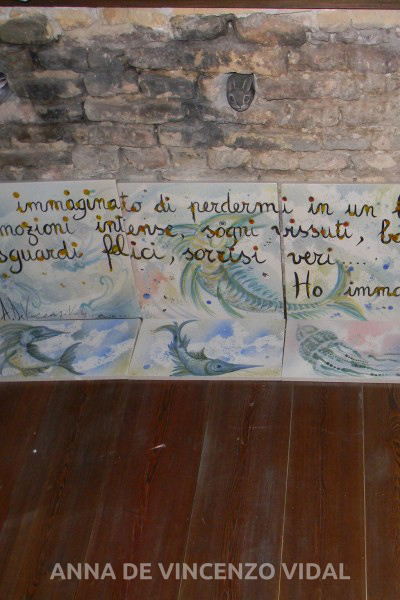 immaginato di perdermi in un
mozioni intense, sogni vissuti,
sguardi felici, sorrisi veri....
Ho imma
ANNA DE VINCENZO VIDAL